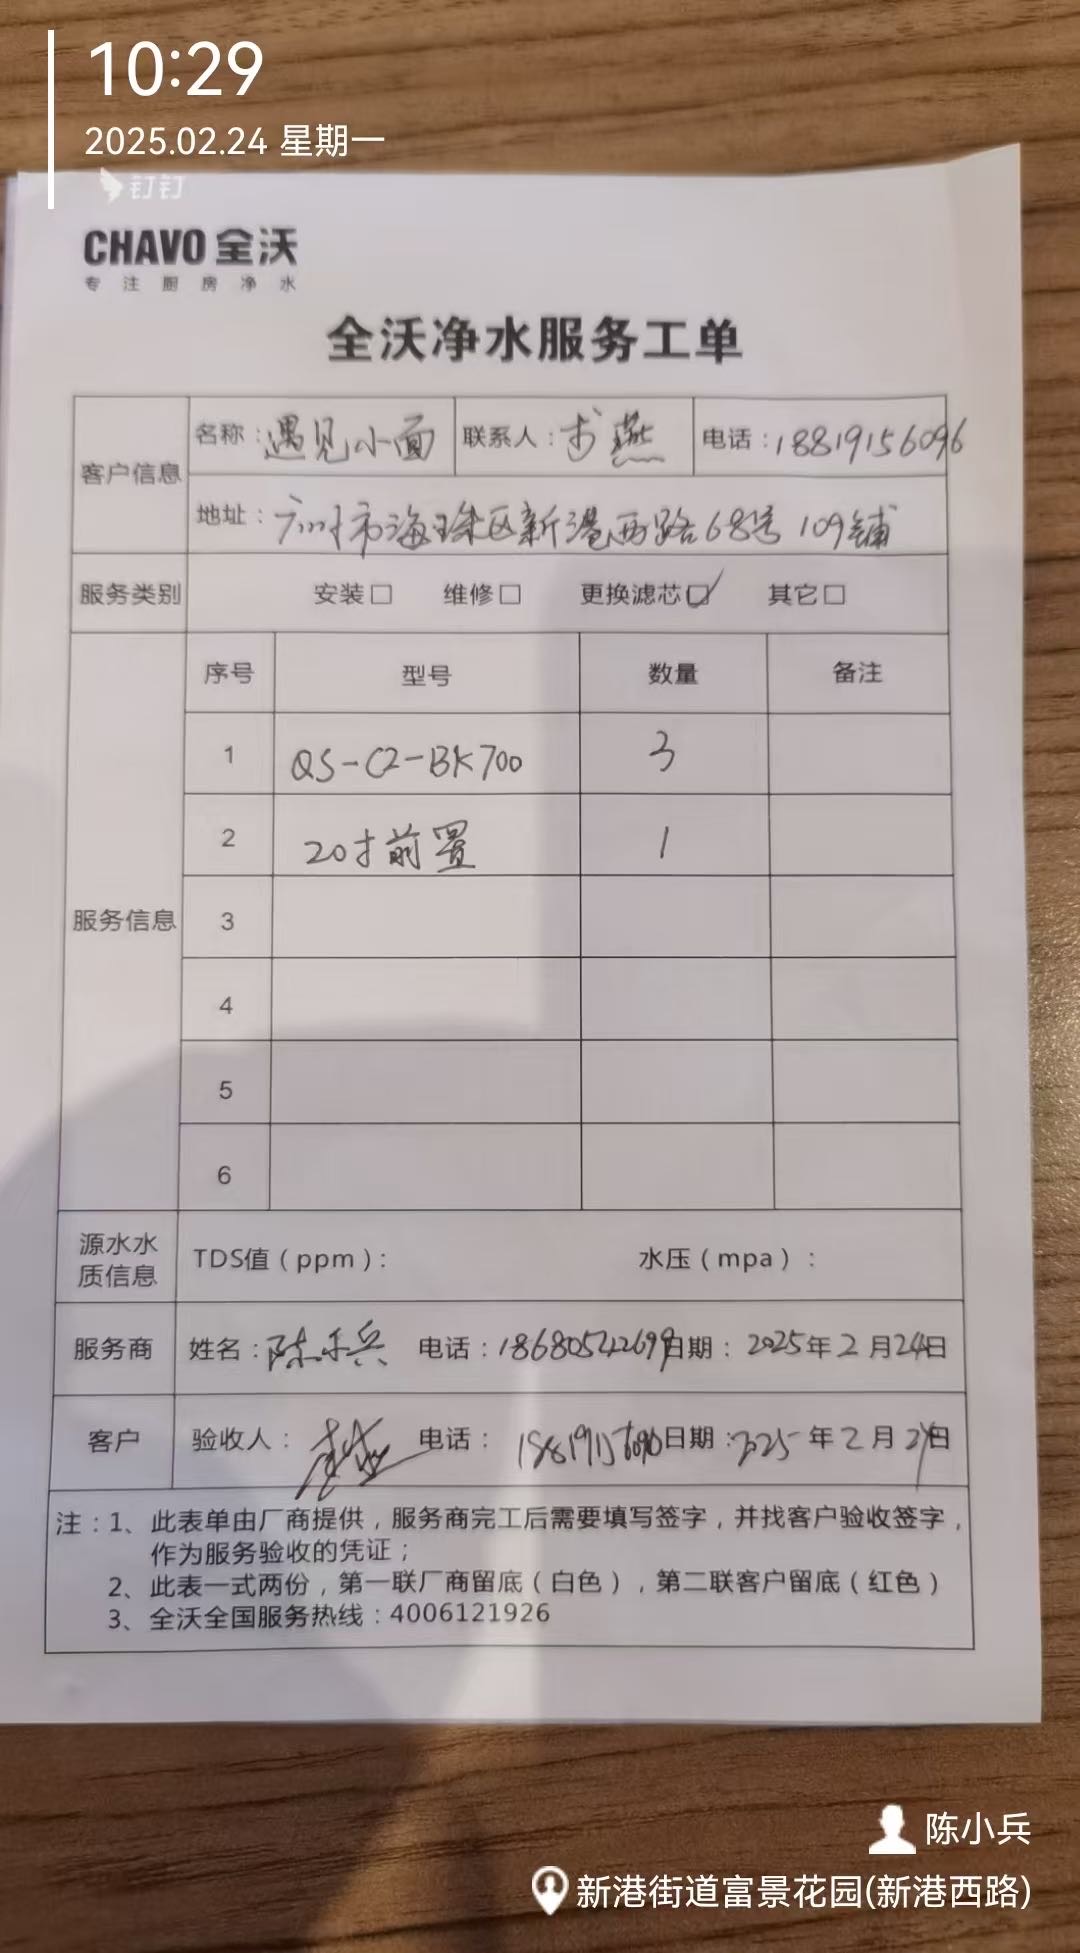 10:29
2025.02.24 星期一
钉钉
CHAVO 全沃
专注厨房净水
全沃净水服务工单
客户信息
名称：遇见小面 联系人：燕 电话：18819156096
地址：广州市海珠区新港西路68号 109铺
服务类别 安装□ 维修□ 更换滤芯☑ 其它□
服务信息
序号 型号 数量 备注
1 QS-C2-BK700 3
2 20寸前置 1
3
4
5
6
源水水质信息 TDS值（ppm）： 水压（mpa）：
服务商 姓名：陈小兵 电话：18680542699 日期：2025年2月24日
客户 验收人： 电话：18819156096 日期：2025年2月24日
注：1、此表单由厂商提供，服务商完工后需要填写签字，并找客户验收签字，
作为服务验收的凭证；
2、此表一式两份，第一联厂商留底（白色），第二联客户留底（红色）
3、全沃全国服务热线：4006121926
陈小兵
新港街道富景花园(新港西路)